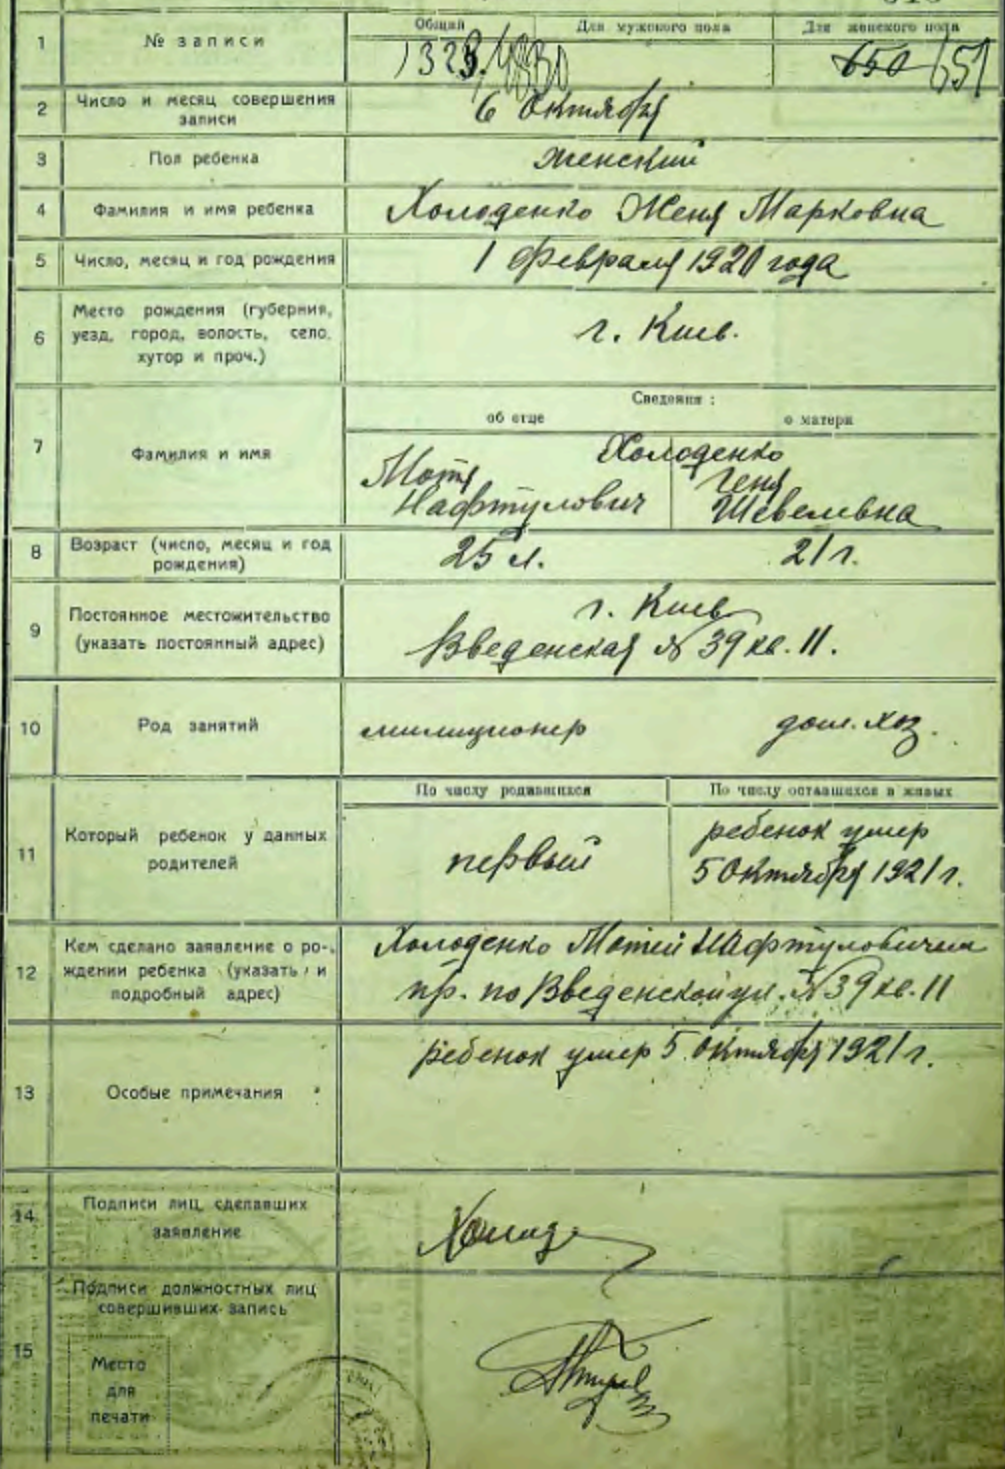 1
№ записи
Общий
Для мужского пола
Для женского пола
650 651
2
Число и месяц совершения
записи
6 Октября
3
Пол ребенка
женский
4
Фамилия и имя ребенка
Холоденко Женя Марковна
5
Число, месяц и год рождения
1 Февраля 1921 года
6
Место рождения (губерния,
уезд, город, волость, село,
хутор и проч.)
г. Киев.
7
Фамилия и имя
Сведения :
об отце
о матери
Холоденко
Мотя
Нафтулович
Геня
Шевелевна
8
Возраст (число, месяц и год
рождения)
25 л.
21 г.
9
Постоянное местожительство
(указать постоянный адрес)
г. Киев
Введенская № 39 кв. 11.
10
Род занятий
милиционер
дом. хоз.
11
Который ребенок у данных
родителей
По числу родившихся
По числу оставшихся в живых
первый
ребенок умер
5 Октября 1921 г.
12
Кем сделано заявление о ро-
ждении ребенка (указать и
подробный адрес)
Холоденко Мотей Нафтуловичем
пр. по Введенской ул. № 39 кв. 11
13
Особые примечания
ребенок умер 5 Октября 1921 г.
14
Подписи лиц, сделавших
заявление
15
Подписи должностных лиц
совершивших запись
Место
для
печати